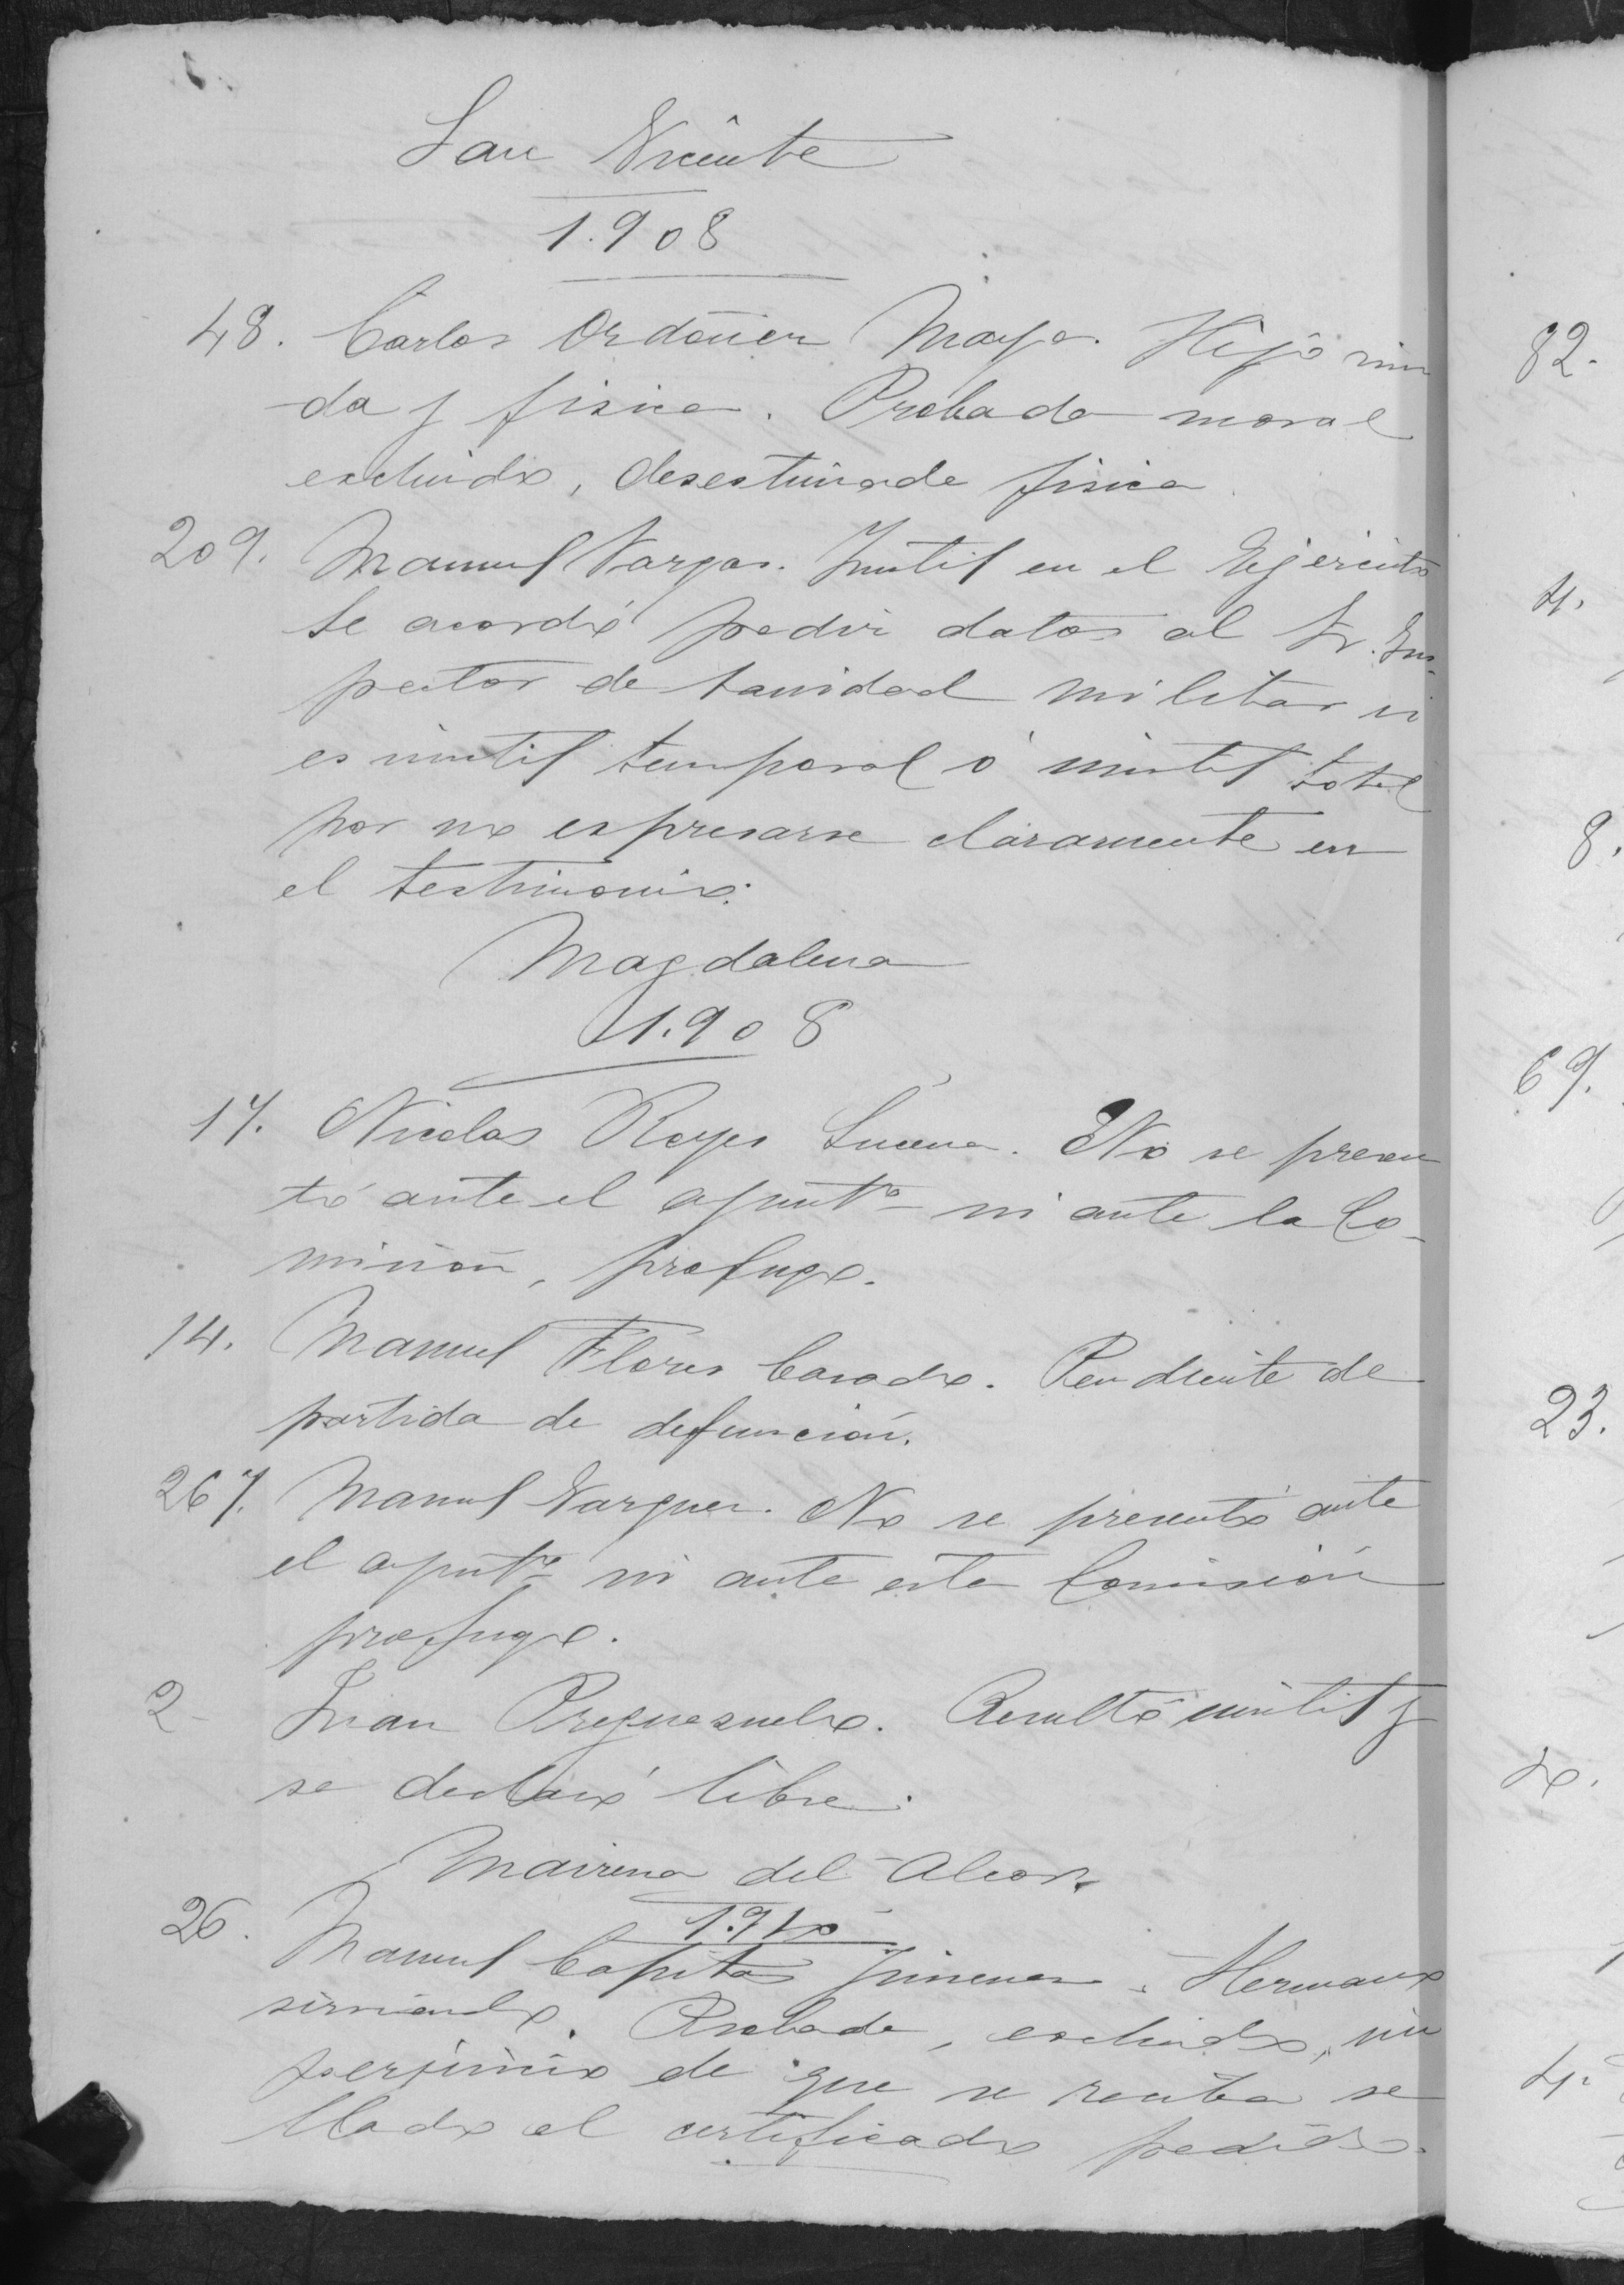 San Vicente
1.908
48. Carlos Ordoñez Maya. Hijo viu
da y fisica. Probada moral
excluido, desestimada fisica.
209. Manuel Vargas. Inutil en el Ejercito
se acordó pedir datos al Sr. Ins-
pector de Sanidad militar si
es inutil temporal ó inutil total
por no espresarse claramente en
el testimonio.
Magdalena
1.908
17. Nicolas Reyes Lucena. No se presen
tó ante el ayuntº ni ante la Co-
misión, profugo.
14. Manuel Flores Casado. Pendiente de
partida de defunción.
267. Manuel Vazquez. No se presentó ante
el ayuntº ni ante esta Comisión
profugo.
2- Juan Preguezuelo. Resultó inutil y
se declaró libre.
Mairena del Alcor.
1.910
26. Manuel Capitas Jimenez. Hermano
sirviendo. Probada, excluido, sin
perjuicio de que se reciba se
llado el certificado pedido.
82.
4.
8.
69.
23.
4.